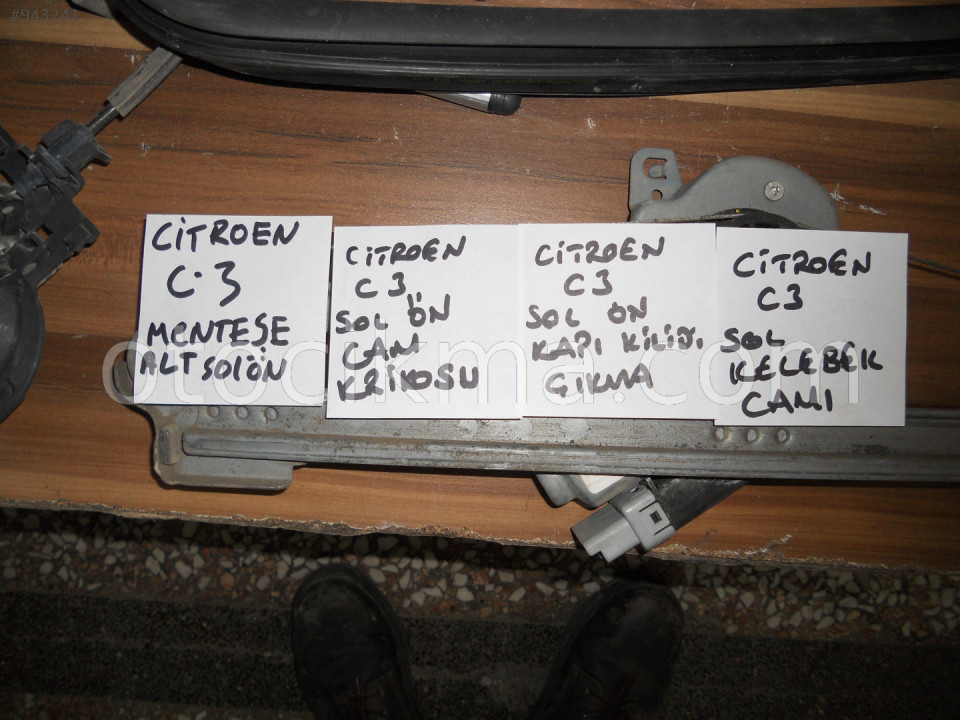 #943241
CİTROEN
C.3
MENTEŞE
ALT SOLÖN
CİTROEN
C3
SOL ÖN
CAM
KRİKOSU
CİTROEN
C3
SOL ÖN
KAPI KİLİĞİ
ÇIKMA
CİTROEN
C3
SOL
KELEBEK
CAMI
otocikma.com